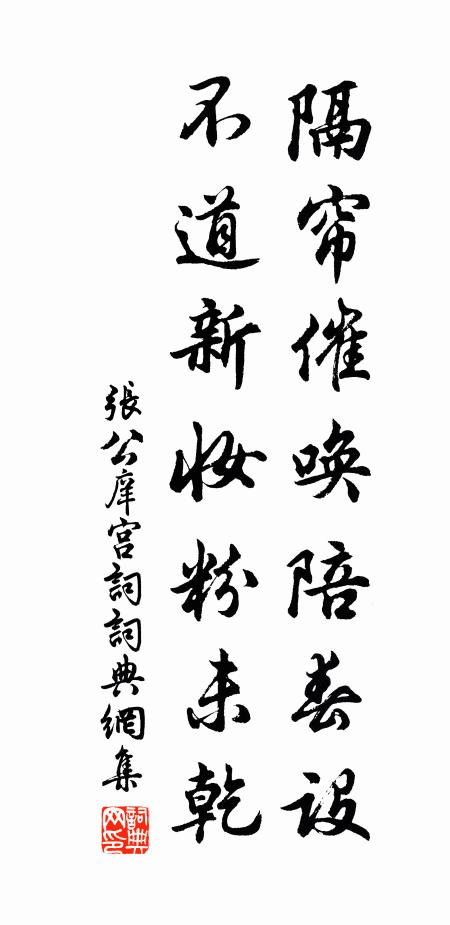 隔帘催唤陪春设
不道新妆粉未乾
張公庠宫詞詞典網集
詞典
网印